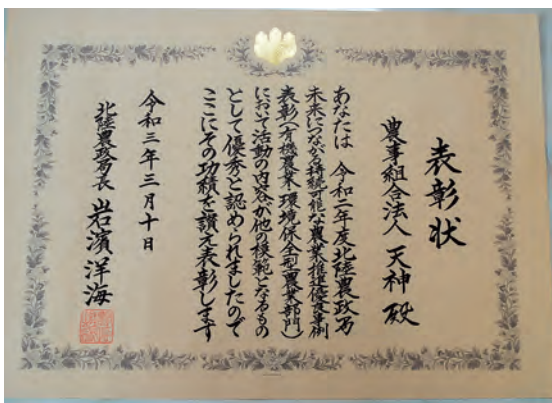 表彰状
農事組合法人 天神 殿
あなたは 令和二年度北陸農政局
未来につながる持続可能な農業推進優良事例
表彰(有機農業・環境保全型農業部門)
において活動の内容が他の模範となるもの
として優秀と認められましたので
ここにその功績を讃え表彰します
令和三年三月十日
北陸農政局長 岩濱洋海